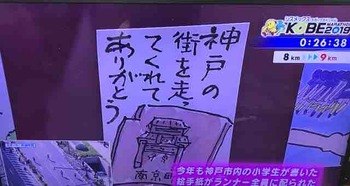 KOBE MARATHON 2019
0:26:38
8 km 9 km
神戸の
街を走っ
てくれて
ありがとう
南京町
今年も神戸市内の小学生が書いた
絵手紙がランナー全員に配られた